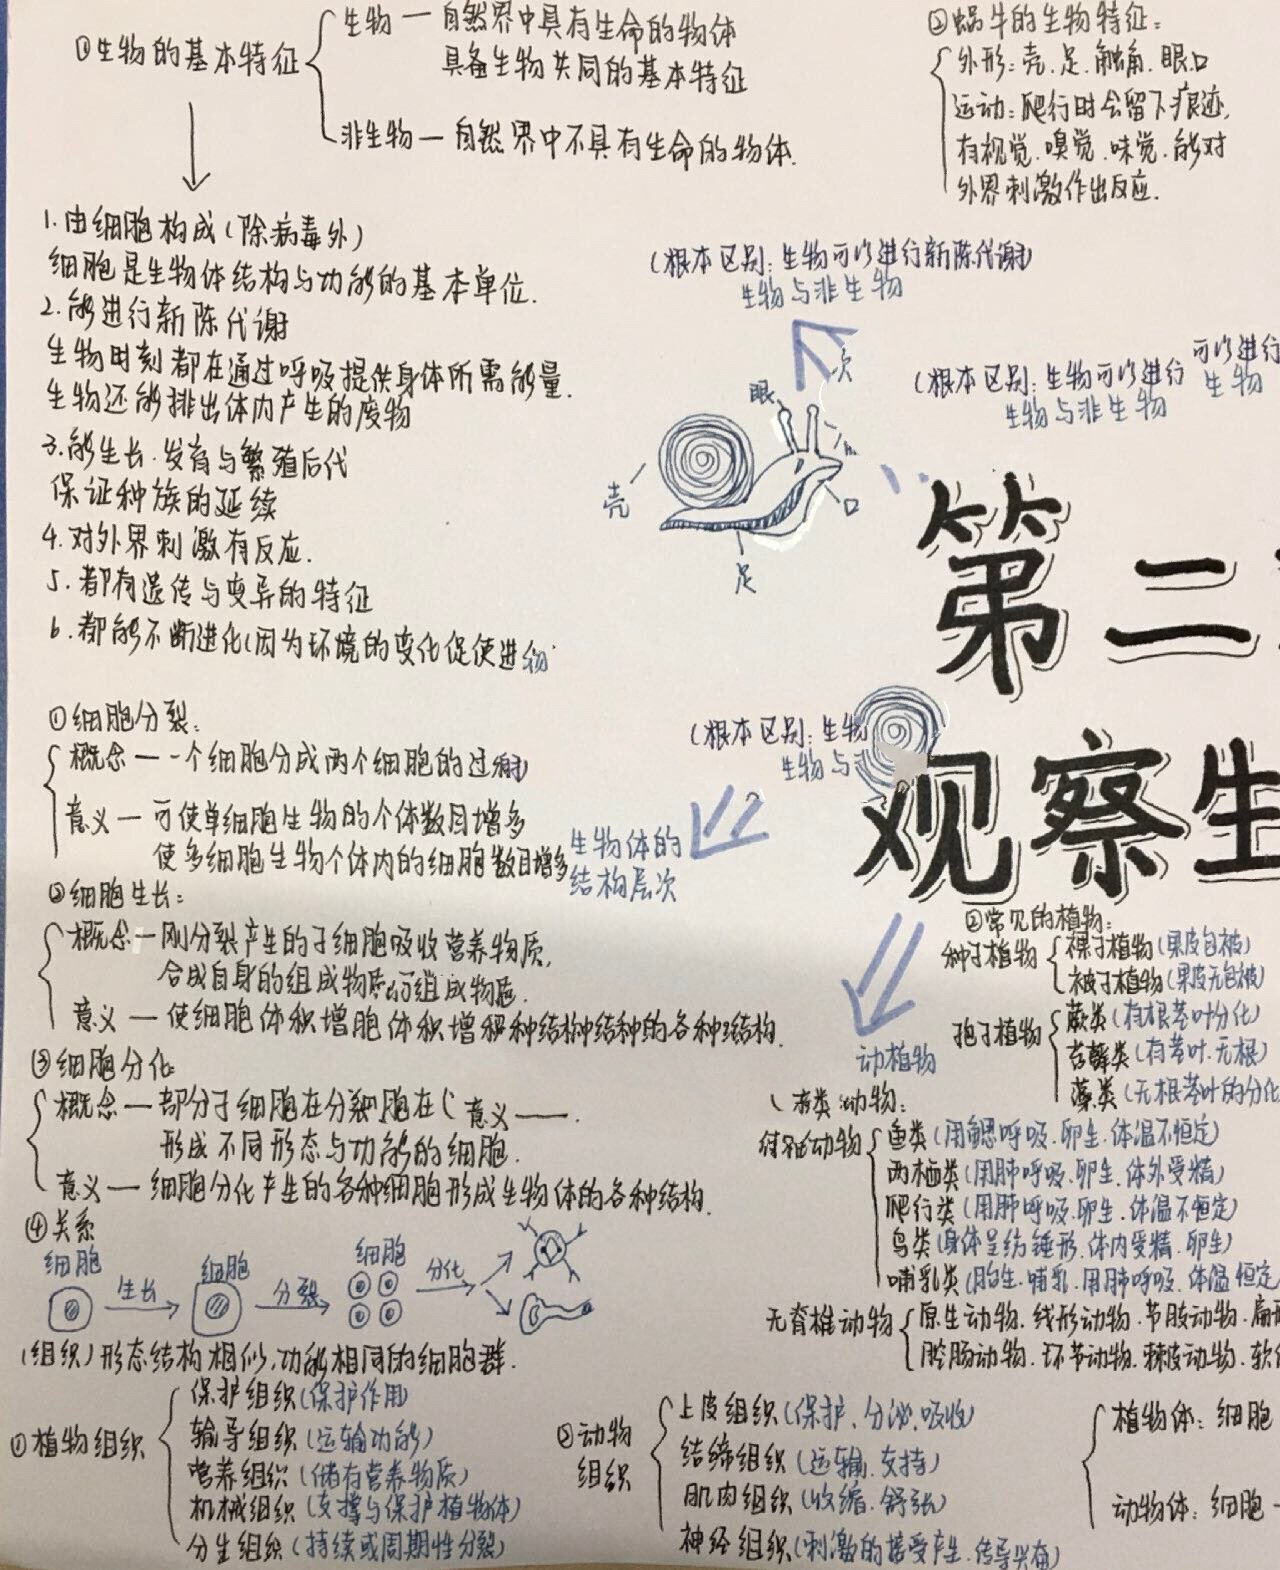 ①生物的基本特征
生物—自然界中具有生命的物体
具备生物共同的基本特征
非生物—自然界中不具有生命的物体.
②蜗牛的生物特征:
外形:壳.足.触角.眼.口
运动:爬行时会留下痕迹,
有视觉.嗅觉.味觉.能对
外界刺激作出反应.
1.由细胞构成(除病毒外)
细胞是生物体结构与功能的基本单位.
2.能进行新陈代谢
生物时刻都在通过呼吸提供身体所需能量.
生物还能排出体内产生的废物
3.能生长.发育与繁殖后代
保证种族的延续
4.对外界刺激有反应.
5.都有遗传与变异的特征
6.都能不断进化(因为环境的变化促使进
(根本区别:生物可以进行新陈代谢)
生物与非生物
可以进行
(根本区别:生物可以进行 生物
生物与非生物
眼
壳
口
足
第二
(根本区别:生物
生物与
观察生
①细胞分裂:
概念—一个细胞分成两个细胞的过
意义—可使单细胞生物的个体数目增多
使多细胞生物个体内的细胞数目增多
生物体的
结构层次
②细胞生长:
概念—刚分裂产生的子细胞吸收营养物质,
合成自身的组成物质的组成物质.
意义—使细胞体积增胞体积增积种结构中结种的各种结构.
③细胞分化:
概念—部分子细胞在分裂胞在( 意义——.
形成不同形态与功能的细胞.
意义—细胞分化产生的各种细胞形成生物体的各种结构.
④关系
细胞 生长 细胞 分裂 细胞 分化
动植物
②常见的植物:
种子植物
裸子植物(果皮包被)
被子植物(果皮无包被)
孢子植物
蕨类(有根茎叶分化)
苔藓类(有茎叶.无根)
藻类(无根茎叶的分化
类动物:
脊椎动物
鱼类(用鳃呼吸.卵生.体温不恒定)
两栖类(用肺呼吸.卵生.体外受精)
爬行类(用肺呼吸.卵生.体温不恒定)
鸟类(身体呈纺锤形.体内受精.卵生)
哺乳类(胎生.哺乳.用肺呼吸.体温恒定
无脊椎动物
原生动物.线形动物.节肢动物.扁形
腔肠动物.环节动物.棘皮动物.软体
(组织)形态结构相似,功能相同的细胞群.
①植物组织
保护组织(保护作用)
输导组织(运输功能)
营养组织(储存营养物质)
机械组织(支撑与保护植物体)
分生组织(持续或周期性分裂)
②动物
组织
上皮组织(保护.分泌.吸收)
结缔组织(运输.支持)
肌肉组织(收缩.舒张)
神经组织(刺激的接受产生.传导兴奋)
植物体:细胞
动物体:细胞